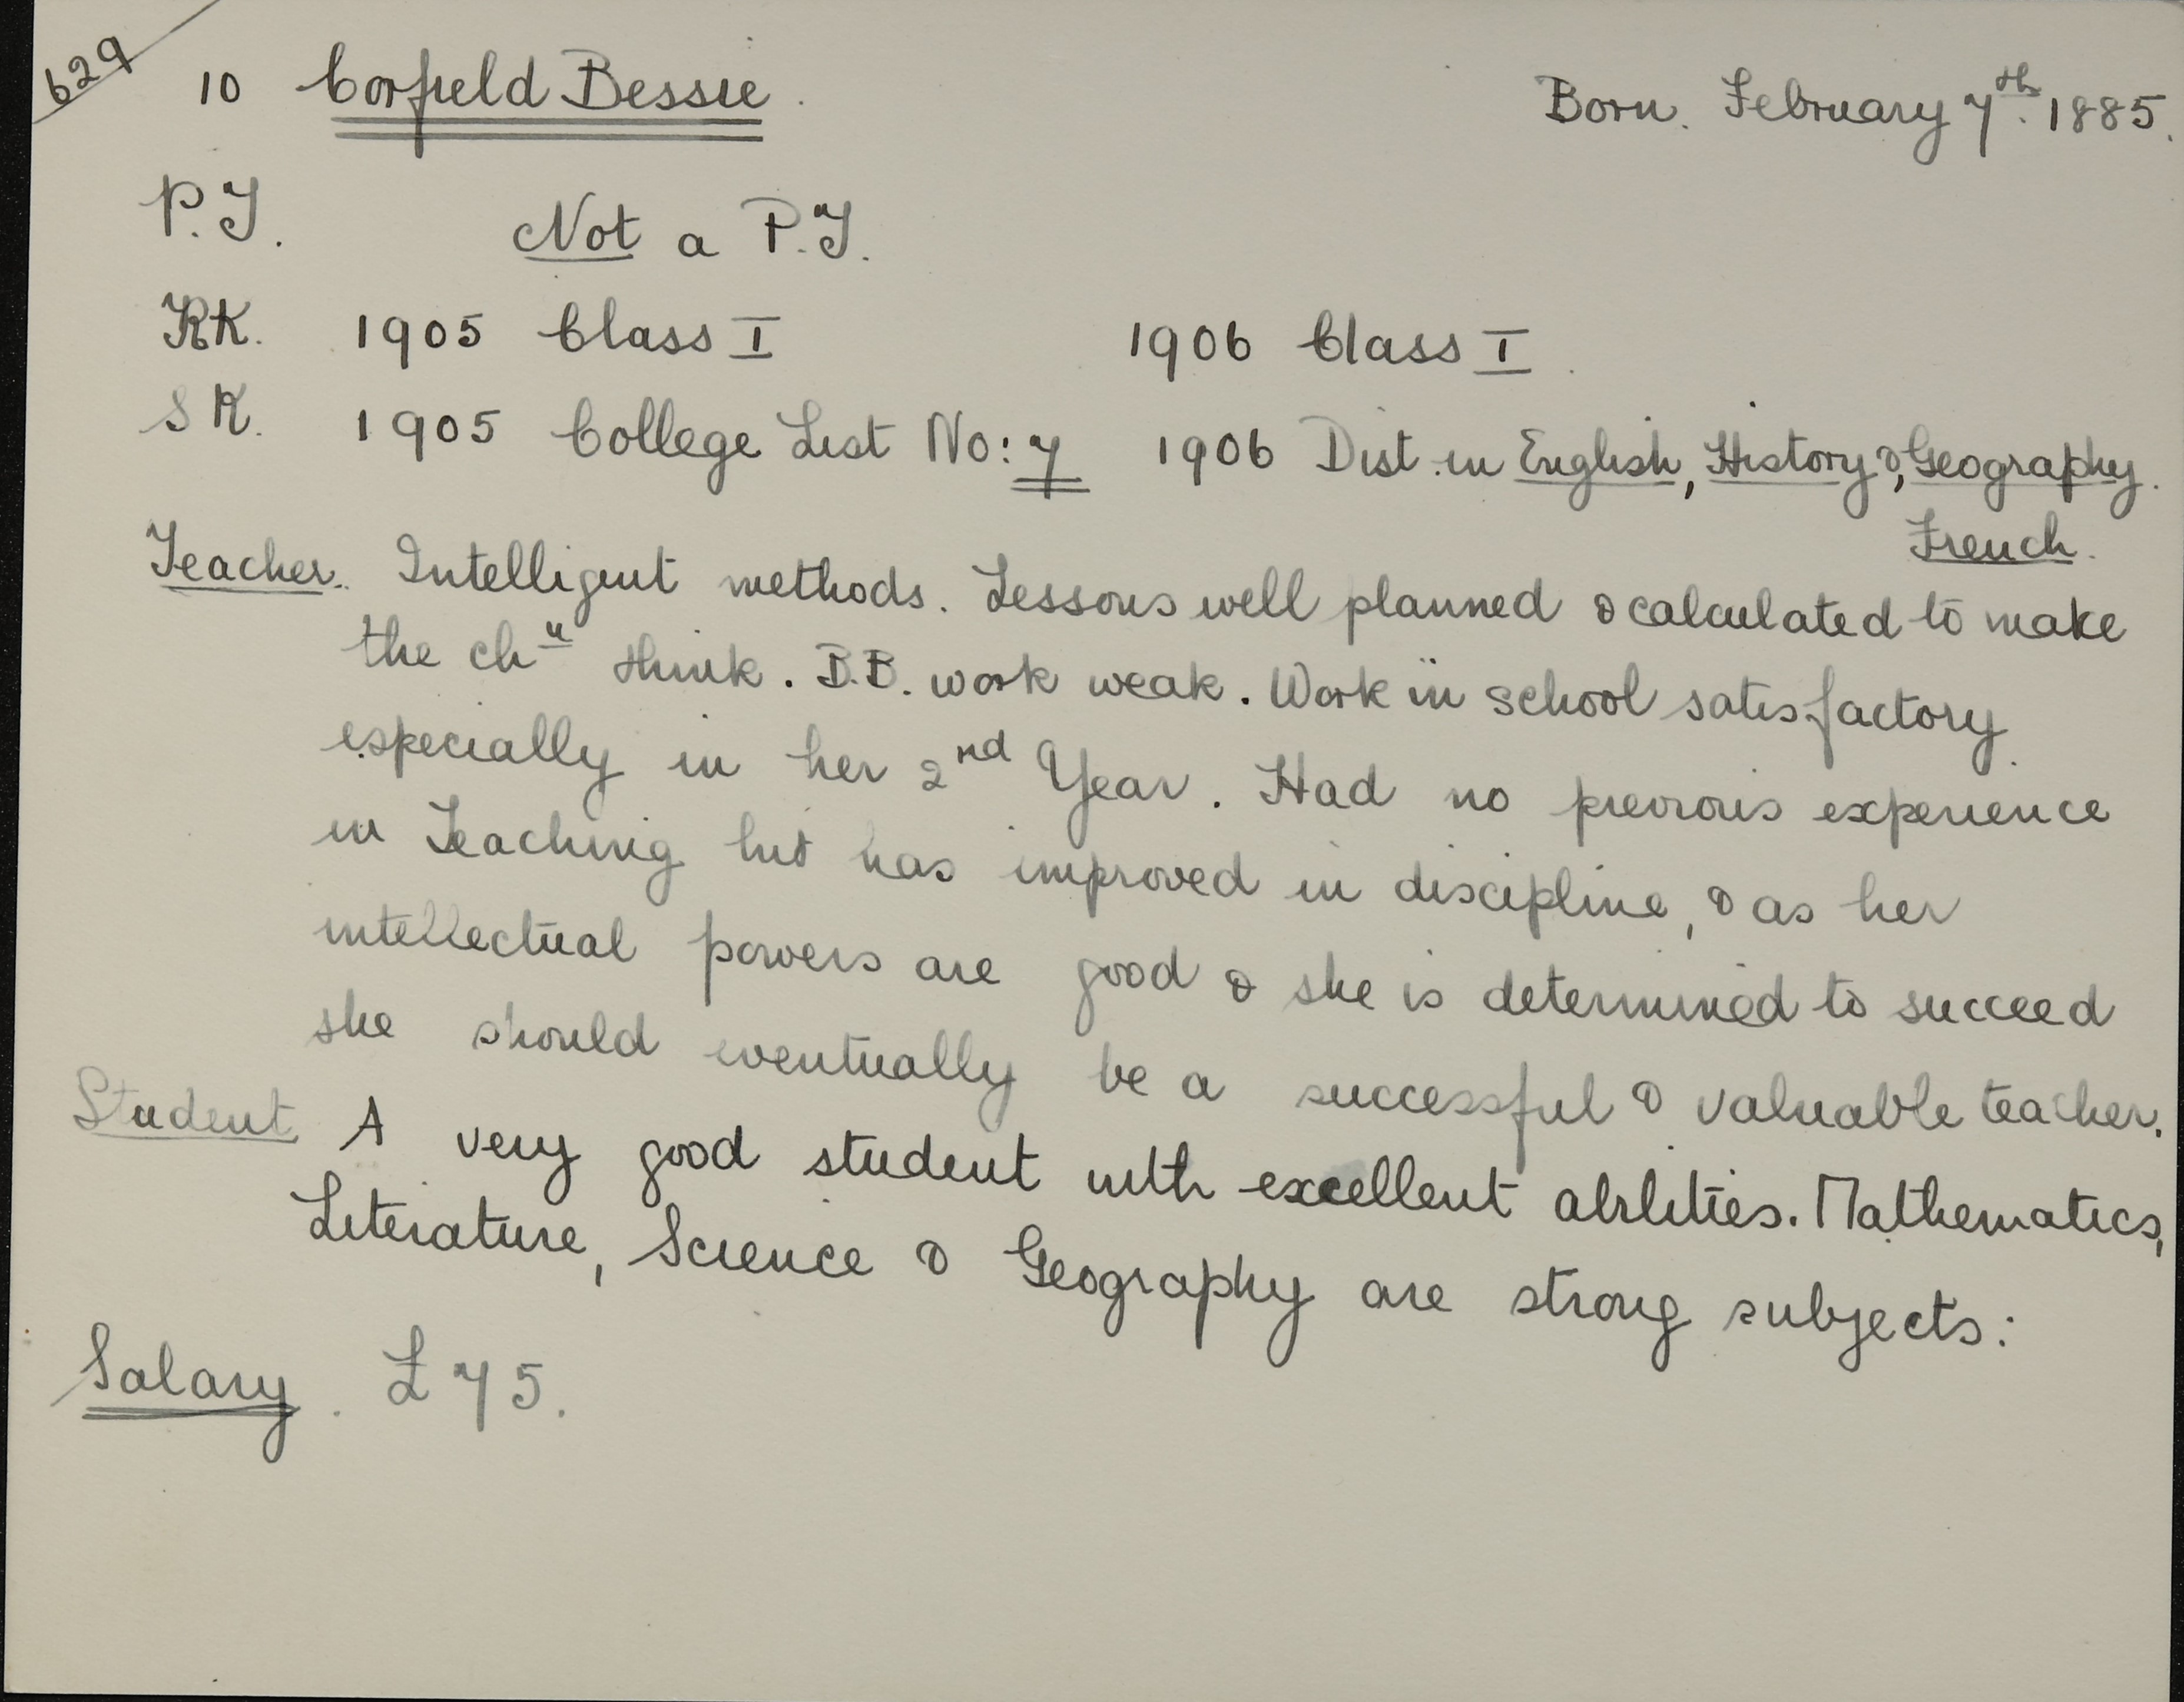 629
10 Corfield Bessie. Born. February 7th. 1885.
P.T. Not a P.T.
RK. 1905 Class I 1906 Class I.
SK. 1905 College List No: 7 1906 Dist. in English, History &, Geography.
French.
Teacher. Intelligent methods. Lessons well planned & calculated to make
the chn think. B.B. work weak. Work in school satisfactory
especially in her 2nd Year. Had no previous experience
in Teaching but has improved in discipline, & as her
intellectual powers are good & she is determined to succeed
she should eventually be a successful & valuable teacher.
Student A very good student with excellent abilities. Mathematics,
Literature, Science & Geography are strong subjects:
Salary. £75.